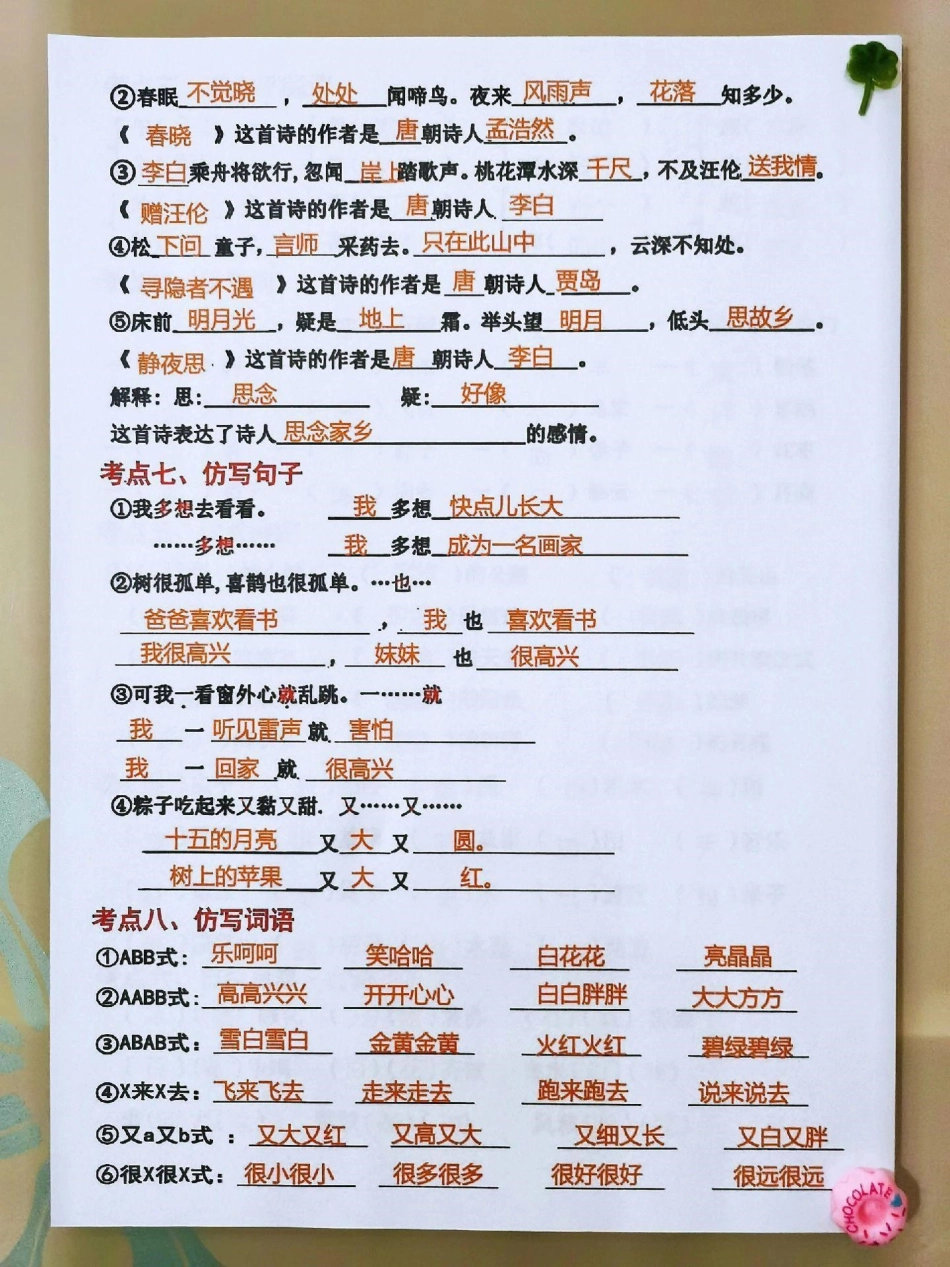 ②春眠不觉晓，处处闻啼鸟。夜来风雨声，花落知多少。
《春晓》这首诗的作者是唐朝诗人孟浩然。
③李白乘舟将欲行，忽闻岸上踏歌声。桃花潭水深千尺，不及汪伦送我情。
《赠汪伦》这首诗的作者是唐朝诗人李白
④松下问童子，言师采药去。只在此山中，云深不知处。
《寻隐者不遇》这首诗的作者是唐朝诗人贾岛。
⑤床前明月光，疑是地上霜。举头望明月，低头思故乡。
《静夜思》这首诗的作者是唐朝诗人李白。
解释：思：思念 疑：好像
这首诗表达了诗人思念家乡的感情。
考点七、仿写句子
①我多想去看看。 我多想快点儿长大
……多想…… 我多想成为一名画家
②树很孤单，喜鹊也很孤单。…也…
爸爸喜欢看书，我也喜欢看书
我很高兴，妹妹也很高兴
③可我一看窗外心就乱跳。一……就
我一听见雷声就害怕
我一回家就很高兴
④粽子吃起来又黏又甜. 又……又……
十五的月亮又大又圆。
树上的苹果又大又红。
考点八、仿写词语
①ABB式：乐呵呵 笑哈哈 白花花 亮晶晶
②AABB式：高高兴兴 开开心心 白白胖胖 大大方方
③ABAB式：雪白雪白 金黄金黄 火红火红 碧绿碧绿
④X来X去：飞来飞去 走来走去 跑来跑去 说来说去
⑤又a又b式：又大又红 又高又大 又细又长 又白又胖
⑥很X很X式：很小很小 很多很多 很好很好 很远很远
CHOCOLATE